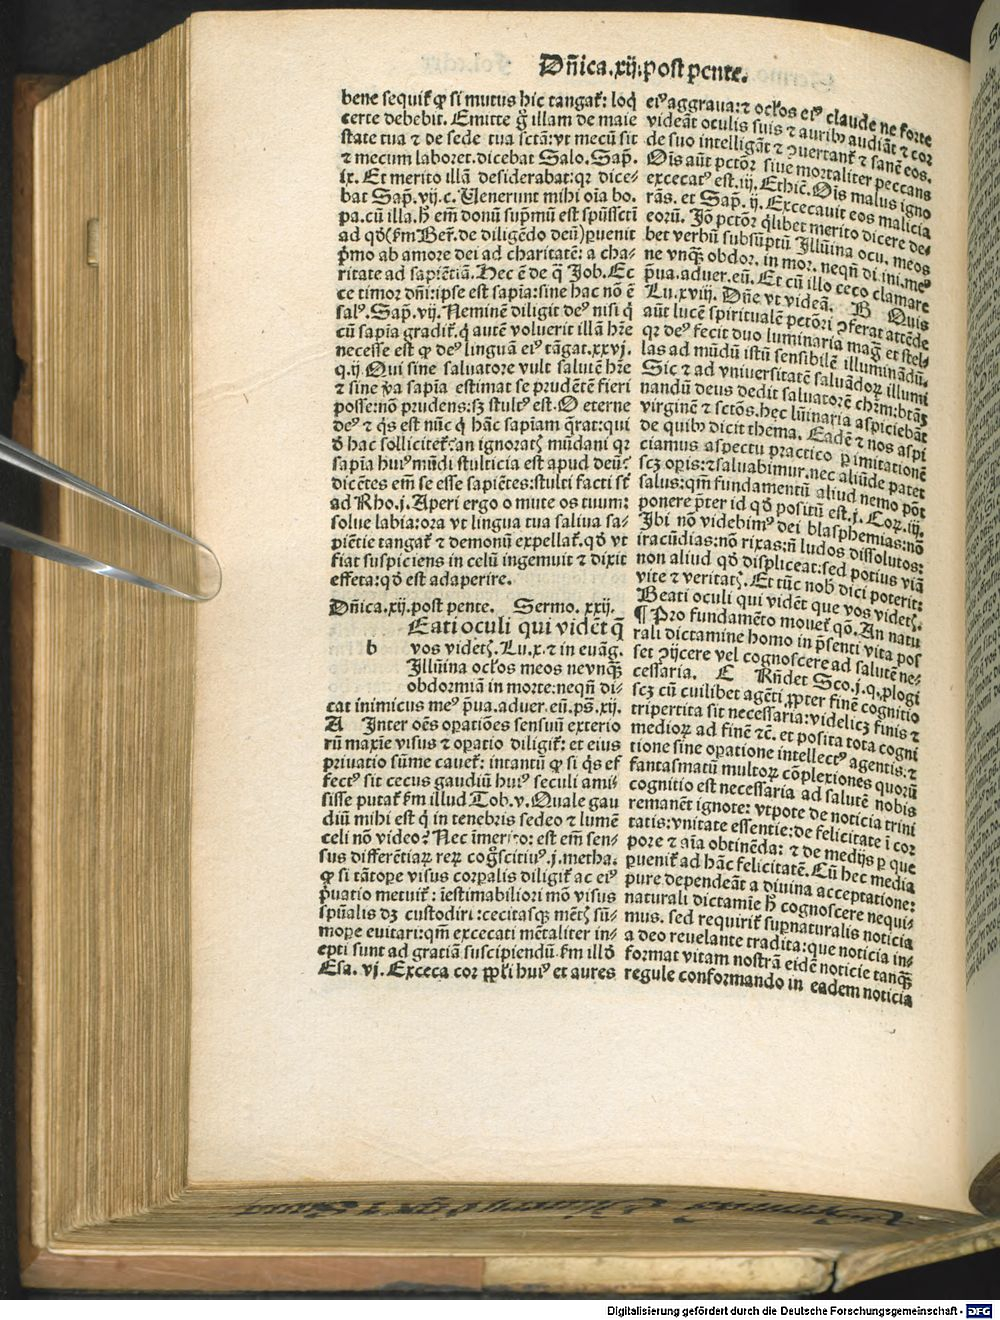 Dñica.xij.post pente.
bene sequit᷑ ꝙ si mutus hic tangat᷑: loq̄
certe debebit. Emitte g̊ illam de maie
state tua ⁊ de sede tua sctā: vt mecū sit
⁊ mecum laboret. dicebat Salo. Sap̄.
ix. Et merito illā desiderabat: qꝛ dice-
bat Sap̄. vij. c. Uenerunt mihi oīa bo.
pa. cū illa. h̄ em̄ donū sup̄mū est spūssctī
ad qđ (ẜm Ber̄. de diligēdo deū) ꝑuenit
p̄mo ab amore dei ad charitatē: a cha-
ritate ad sapiētiā. Hec ē de q̄ Job. Ec
ce timor dñi: ipse est sapīa: sine hac nō ē
salꝰ. Sap̄. vij. Neminē diligit deꝰ nisi q̄
cū sapīa gradit᷑. q̄ autē voluerit illā hr̄e
necesse est ꝙ deꝰ linguā eiꝰ tāgat. xxvj.
q. ij. Qui sine saluatore vult salutē hr̄e
⁊ sine v̄a sapīa estimat se prudētē fieri
posse: nō prudens: sꝫ stultꝰ est. O eterne
deꝰ ⁊ q̄s est nūc q̄ hāc sapīam q̄rat: qui
đ hac sollicitet᷑: an ignoratꝭ mūdani qꝛ
sapīa huiꝰ mūdi stulticia est apud deū?
dicētes em̄ se esse sapiētes: stulti facti st̄
ad Rho. j. Aperi ergo o mute os tuum:
solue labia: ora vt lingua tua saliua sa-
piētie tangat᷑ ⁊ demoniū expellat᷑. qđ vt
fiat suspiciens in celū ingemuit ⁊ dixit
effeta: qđ est adaperire.
Dñica. xij. post pente. Sermo. xxij.
Eati oculi qui vidēt q̄
b vos videtꝭ. Lu. x. ⁊ in euāg.
Illūina ocl̄os meos ne vnqꝫ
obdormiā in morte: neqn̄ di-
cat inimicus meꝰ p̄ua. aduer. eū. ps̄. xij.
A Inter oēs oꝑatiōes sensuū exterio
rū maxīe visus ⁊ oꝑatio diligit᷑: et eius
priuatio sūme cauet᷑: intantū ꝙ si q̄s ef
fectꝰ sit cecus gaudiū huiꝰ seculi ami-
sisse putat᷑ ẜm illud Tob. v. Quale gau
diū mihi est q̄ in tenebris sedeo ⁊ lumē
celi nō video? Nec īmerito: est em̄ sen-
sus differētiaꝝ reꝝ cog̊scitiuꝰ. j. metha.
ꝙ si tātoꝑe visus corꝑalis diligit᷑ ac eiꝰ
p̄uatio metuit᷑: īestimabiliori mō visus
spūalis dꝫ custodiri: cecitasqꝫ mētꝭ sū-
moꝑe euitari: qm̄ excecati mētaliter in-
epti sunt ad gratiā suscipiendū ẜm illđ
Esa. vj. Exceca cor ppl̄i huiꝰ et aures
eiꝰ aggraua: ⁊ ocl̄os eiꝰ claude ne forte
videāt oculis suis ⁊ auribꝰ audiāt ⁊ cor
de suo intelligāt ⁊ ꝯuertant᷑ ⁊ sanē eos.
Oīs aūt pctōr siue mortaliter peccans
excecatꝰ est. iij. Ethic̄. Oīs malus igno
rās. et Sap̄. ij. Excecauit eos malicia
eorū. Iō pctōr q̄libet merito dicere de-
bet verbū subsūptū Illūina ocu. meos
ne vnqꝫ obdor. in mor. neqn̄ di. ini. meꝰ
p̄ua. aduer. eū. Et cū illo ceco clamare
Lu. xviij. Dn̄e vt videā. B Quis
aūt lucē spiritualē pctōri ꝯferat attēde
qꝛ deꝰ fecit duo luminaria maḡ et stel-
las ad mūdū istū sensibilē illuminādū.
Sic ⁊ ad vniuersitatē saluādoꝝ illumi
nandū deus dedit saluatorē chr̄m: btā
virginē ⁊ sctōs. hec lūinaria aspiciebāt
de quibꝰ dicit thema. Eadē ⁊ nos aspi
ciamus aspectu practico ꝑ imitationē
scꝫ oꝑis: ⁊ saluabimur. nec aliūde patet
salus: qm̄ fundamentū aliud nemo pōt
ponere p̄ter id qđ positū est. j. Coꝝ. iij.
Ibi nō videbimꝰ dei blasphemias: nō
iracūdias: nō rixas: n̄ ludos dissolutos:
non aliud qđ displiceat: sed potius viā
vite ⁊ veritatꝭ. Et tūc nob̄ dici poterit:
Beati oculi qui vidēt que vos videtꝭ.
¶ Pro fundamēto mouet᷑ qō. An natu
rali dictamine homo in p̄senti vita pos
set ꝯijcere vel cognoscere ad salutē ne-
cessaria. C Rn̄det Sco. j. q. plogi
scꝫ cū cuilibet agēti ꝓpter finē cognitio
tripertita sit necessaria: videlicꝫ finis ⁊
medioꝝ ad finē ⁊c̄. et posita tota cogni
tione sine oꝑatione intellectꝰ agentis: ⁊
fantasmatū multoꝝ cōplexiones quorū
cognitio est necessaria ad salutē nobis
remanēt ignote: vtpote de noticia trini
tatis: vnitate essentie: de felicitate ī cor
pore ⁊ aīa obtinēda: ⁊ de medijs ꝑ que
ꝑuenit᷑ ad hāc felicitatē. Cū hec media
pure dependeāt a diuina acceptatione:
naturali dictamīe h̄ cognoscere nequi-
mus. sed requirit᷑ suꝑnaturalis noticia
a deo reuelante tradita: que noticia in-
format vitam nostrā eidē noticie tanqꝫ
regule conformando in eadem noticia
Digitalisierung gefördert durch die Deutsche Forschungsgemeinschaft - DFG